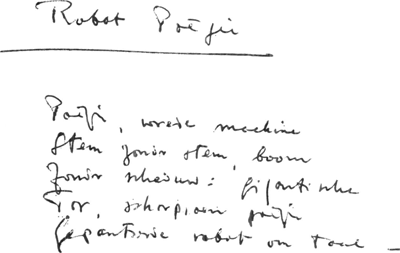 Robot Poëzie
Poëzie, wrede machine
Stem zonder stem, boom
Zonder schaduw: gigantische
Tor, schorpioen poëzie
Gepantserde robot van taal –